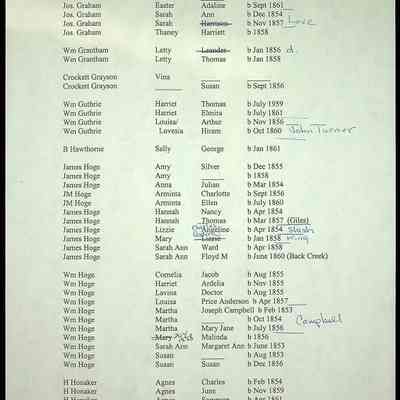 Jos. Graham Easter Adaline b Sept 1861
Jos. Graham Sarah Ann b Dec 1854
Jos. Graham Sarah Harrison b Nov 1857 Love
Jos. Graham Thaney Harriett b 1858
Wm Grantham Letty Leander b Jan 1856 d.
Wm Grantham Letty Thomas b Jan 1858
Crockett Grayson Vina ____
Crockett Grayson ____ Susan b Sept 1856
Wm Guthrie Harriet Thomas b July 1959
Wm Guthrie Harriet Elmira b July 1861
Wm Guthrie Louisa/ Arthur b Nov 1856
Wm Guthrie Lovesia Hiram b Oct 1860 John Turner
B Hawthorne Sally George b Jan 1861
James Hoge Amy Silver b Dec 1855
James Hoge Amy ____ b 1858
James Hoge Anna Julian b Mar 1854
JM Hoge Arminta Charlotte b Sept 1856
JM Hoge Arminta Ellen b July 1860
James Hoge Hannah Nancy b Apr 1854
James Hoge Hannah Thomas b Mar 1857 (Giles)
James Hoge Lizzie Angeline b Apr 1854 Slush
James Hoge Mary Lizzie b Jan 1858 King
James Hoge Sarah Ann Ward b Apr 1858
James Hoge Sarah Ann Floyd M b June 1860 (Back Creek)
Wm Hoge Cornelia Jacob b Aug 1855
Wm Hoge Harriet Ardelia b Nov 1855
Wm Hoge Lavina Doctor b Aug 1855
Wm Hoge Louisa Price Anderson b Apr 1857
Wm Hoge Martha Joseph Campbell b Feb 1853
Wm Hoge Martha ____ b Oct 1854 Campbell
Wm Hoge Martha Mary Jane b July 1856
Wm Hoge Mary Malinda b 1856
Wm Hoge Sarah Ann Margaret Ann b June 1853
Wm Hoge Susan ____ b Aug 1853
Wm Hoge Susan Susan b Dec 1856
H Honaker Agnes Charles b Feb 1854
H Honaker Agnes June b Nov 1859
H Honaker Agnes b Apr 1861